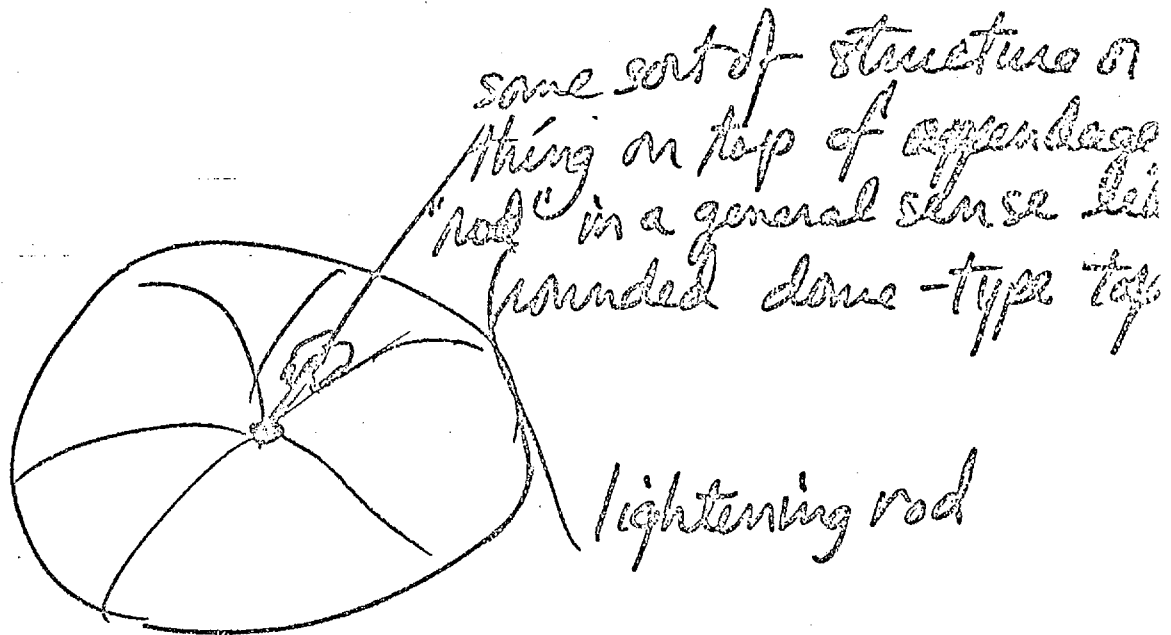 some sort of structure or
thing on top of appendage
"rod" in a general sense
rounded dome-type top
lightening rod